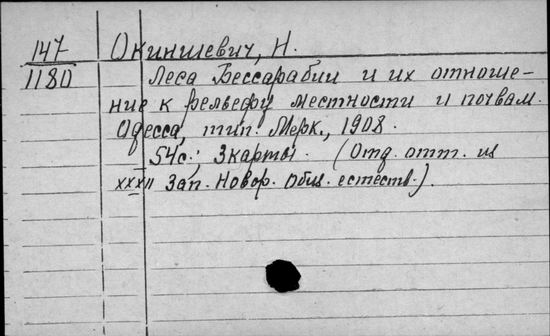 147 Окиншевич, Н.
1180 Леса Бессарабии и их отноше-
ние к рельефу местности и почвам.
Одесса, тип. Мерк., 1908.
54с.; 3карты. (Отд. отт. из
XXXII Зап. Новор. общ. естеств.).